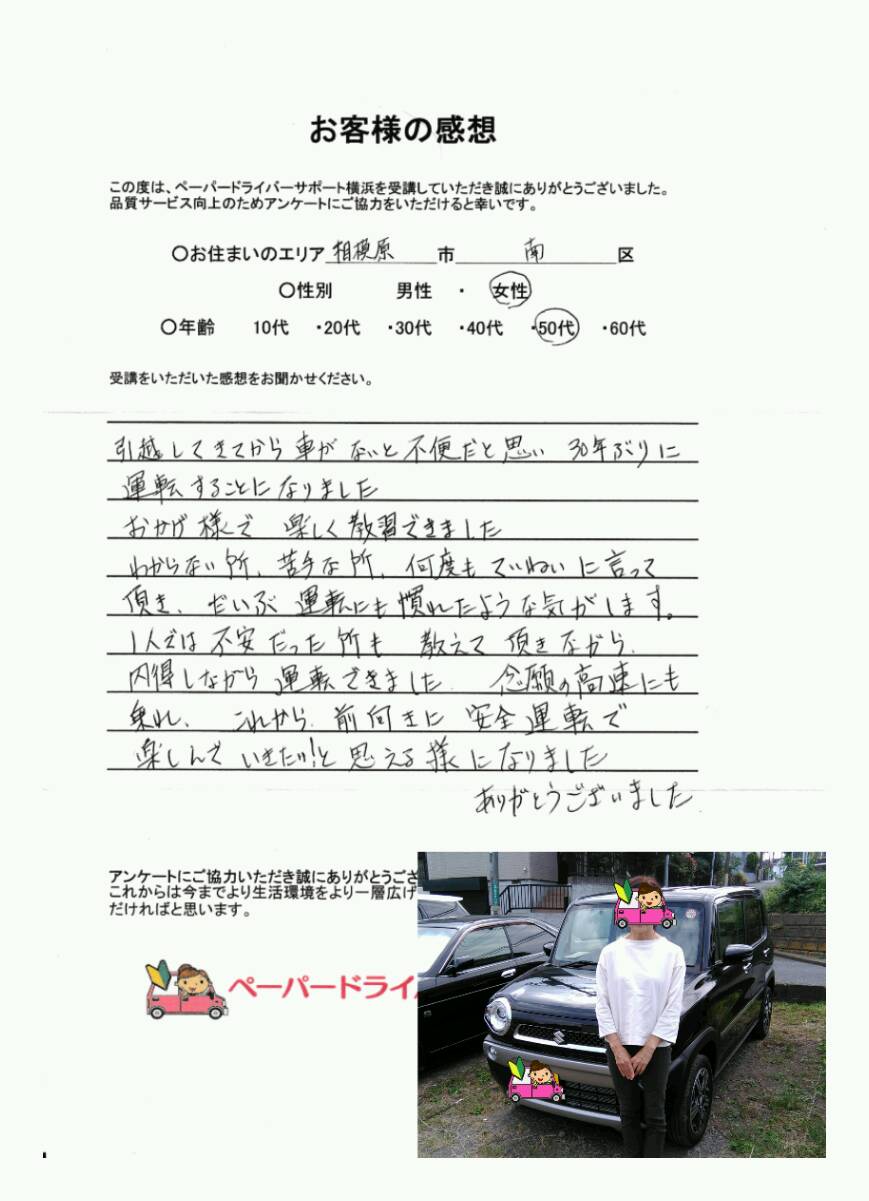 お客様の感想
この度は、ペーパードライバーサポート横浜を受講していただき誠にありがとうございました。
品質サービス向上のためアンケートにご協力をいただけると幸いです。
〇お住まいのエリア 相模原 市 南 区
〇性別 男性 ・ 女性
〇年齢 10代 ・20代 ・30代 ・40代 ・50代 ・60代
受講をいただいた感想をお聞かせください。
引越してきてから車がないと不便だと思い 30年ぶりに
運転することになりました
おかげ様で 楽しく教習できました
わからない所、苦手な所、何度もていねいに言って
頂き、だいぶ運転にも慣れたような気がします。
1人では不安だった所も 教えて頂きながら、
内得しながら運転できました。 念願の高速にも
乗れ、これから、前向きに 安全運転で
楽しんでいきたい!と思える様になりました
ありがとうございました
アンケートにご協力いただき誠にありがとうござ
これからは今までより生活環境をより一層広げ
だければと思います。
ペーパードライ